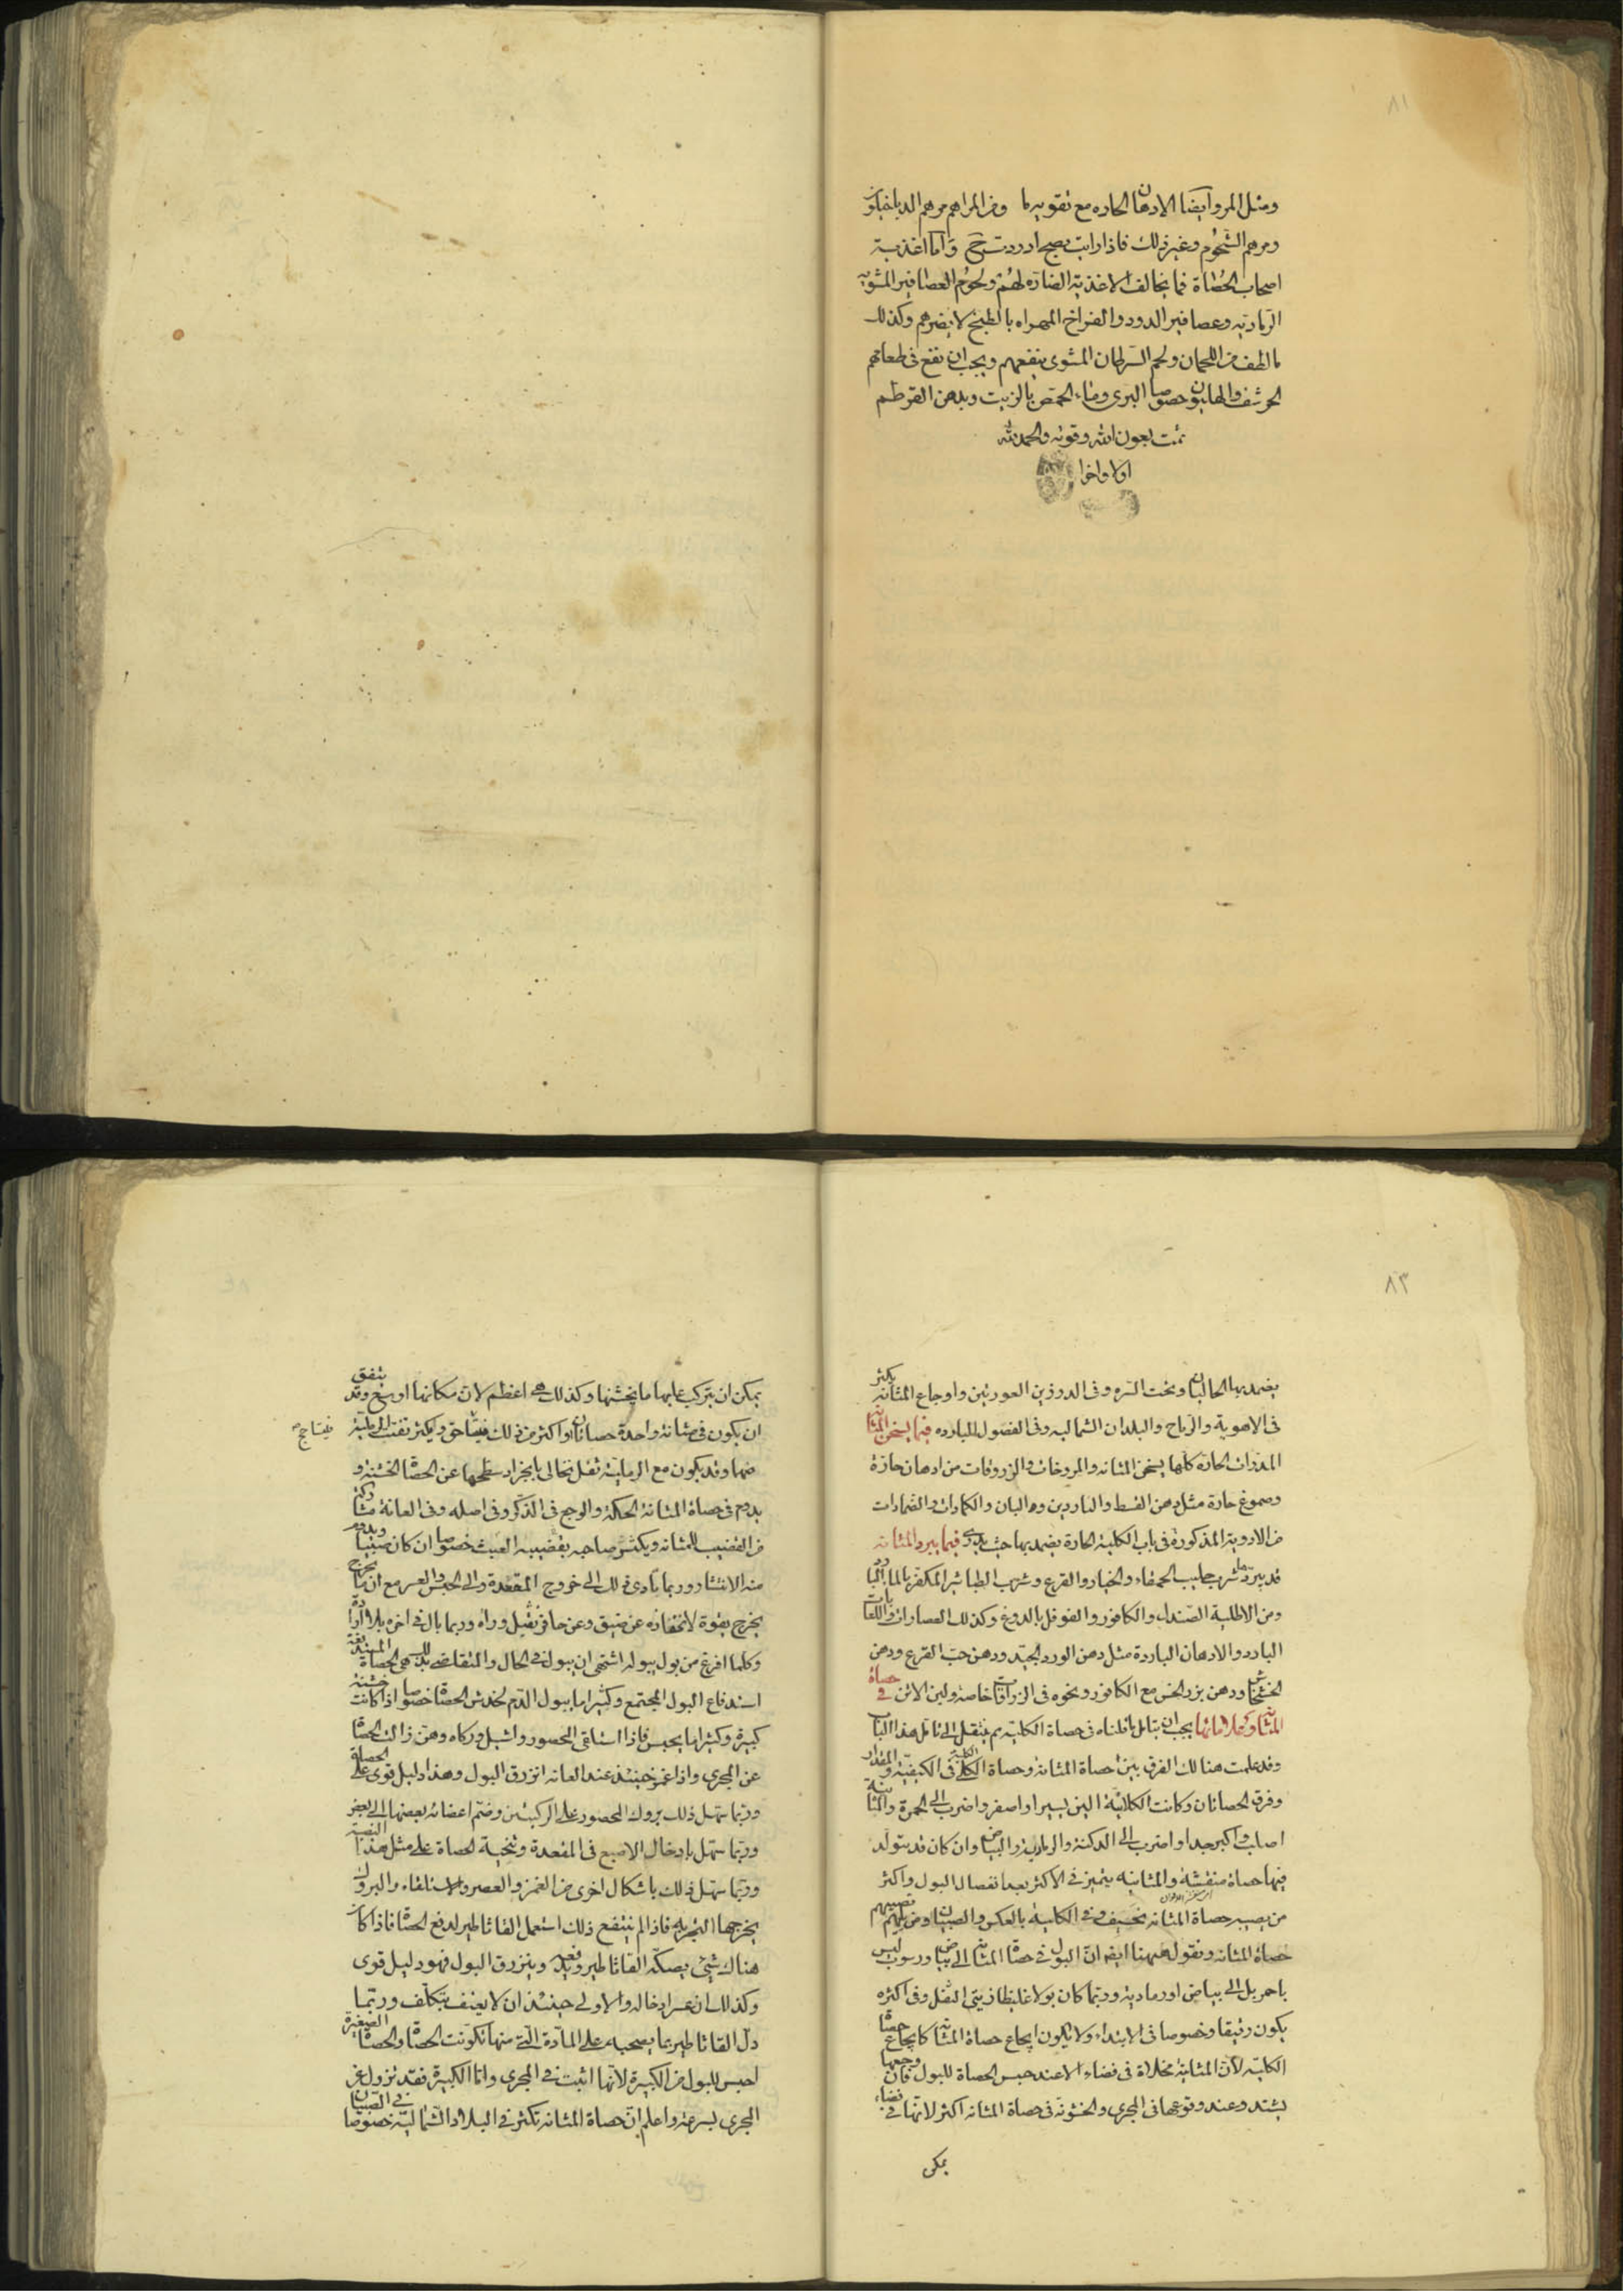 ٨١
ومثل المر وايضا الادهان الحاره مع تقويه ما ومن المراهم مرهم الدياخيلون
ومرهم الشحوم وغير ذلك فاذا رايت نضج ادررت ح واما اغذية
اصحاب الحصاة فما يخالف الاغذية الضاره لهم ولحوم العصافير المشويه
الرماديه وعصافير الدور والفراخ المهراه بالطبخ لا يضرهم وكذلك
ما لطف من اللحمان ولحم السرطان المشوى ينفعهم ويجب ان يقع فى طعامهم
الحرشف والهليون خصوصا البرى وماء الحمص بالزيت وبدهن القرطم
تمت بعون الله وقوته والحمد لله
اولا واخرا
٨٣
يضمد بها الحالبان وتحت السره وفى الدرزين العورتين واوجاع المثانه يكثر
فى الاهوية والرياح والبلدان الشماليه وفى الفصول البارده فيما يسخن المثانه
المدرات الحارة كلها يسخن المثانه والمروخات والزروقات من ادهان حارة
وصموغ حارة مثل دهن القسط والناردين ودهن البان والكمادات والضمادات
من الادوية المذكورة فى باب الكلية الحارة يضمد بها حيث يدرى فيما يبرد المثانه
قد يبردها شرب حليب الحمقاء والخيار والقرع وشرب الطباشير المكفر بالماء البارد
ومن الاطلية الصندل والكافور والفوفل بالدوغ وكذلك العصارات واللعابات
البارد والادهان الباردة مثل دهن الورد الجيد ودهن حب القرع ودهن
الخشخاش ودهن بزر الخس مع الكافور ونحوه فى الزراقات خاصة ولبن الاتن فى حصاة
المثانه وعلاماتها يجب ان يتامل ما قلناه فى حصاة الكلية ثم ينتقل الى تامل هذا الباب
وقد علمت هنالك الفرق بين حصاة المثانه وحصاة الكلى فى الكيفية والمقدار
وفرق الحصاتان وكانت الكلائية الين يسيرا واصغر واضرب الى الحمرة والمثانية
اصلب واكبر جدا واضرب الى الدكنة والرمادية والبياض وان كان قد يتولد
فيها حصاة متفتتة والمثانيه يتميز فى الاكثر بعد انفصال البول واكثر
من يصيبه حصاة المثانه نحيف وفى الكليه بالعكس والصبيان ومن يليهم تصيبهم
حصاة المثانه ونقول ههنا ايضا ان البول فى حصاة المثانه الى بياض ورسوب ليس
باحمر بل الى بياض او رمادية وربما كان بولا غليظا زيتى الثفل وفى اكثره
يكون رقيقا وخصوصا فى الابتداء ولا يكون ايجاع حصاة المثانه كايجاع حصاة
الكلية لان المثانه مخلاة فى فضاء الا عند حبس الحصاة للبول فان وجعها
يشتد وعند وقوعها فى المجرى والخشونه فى حصاة المثانه اكثر لانها فى فضاء
يمكن
يمكن ان يتركب عليها ما يخشنها وكذلك هى اعظم لان مكانها اوسع وقد يتفق
ان يكون فى مثانه واحدة حصاتان او اكثر من ذلك فيتساحق ويكثر تفتت الرملية
منها وقد يكون مع الرملية ثفل نخالى بانجراد سطحها عن الحصاة الخشنه و
يدوم فى حصاة المثانه الحكة والوجع فى الذكر وفى اصله وفى العانة مشاركة
من القضيب للمثانه ويكثر صاحبه بقضيبه العبث خصوصا ان كان صبيا ويدوم
منه الانتشار وربما تادى ذلك الى خروج المقعدة والى الحبس والعسر مع ان ما يخرج
يخرج بقوة لانحفازه عن ضيق وعن حافز ثقيل وراه وربما بال فى اخره بلا ارادة
وكلما افرغ من بول يبوله اشتهى ان يبول فى الحال والمتقاضى لذلك هى الحصاة
استدفاع البول المجتمع وكثيرا ما يبول الدم لخدش الحصاة خصوصا اذا كانت خشنة
كبيرة وكثيرا ما يحبس فاذا استلقى المحصور واشيل وركاه وهز زالت الحصاة
عن المجرى واذا غمز حينئذ عند العانه انزرق البول وهذا دليل قوى على الحصاة
وربما سهل ذلك بروك المحصور على الركبتين وضم اعضائه بعضها الى بعض
وربما سهل بادخال الاصبع فى المقعدة وتنحية الحصاة على مثل هذا النصبة
وربما سهل ذلك باشكال اخرى من الغمز والعصر والاستلقاء والبروك
يخرجها التجربه فاذا لم ينتفع ذلك استعمل القاثاطير لدفع الحصاة فاذا كان
هناك شئ يصكه القاثاطير وينزرق البول فهو دليل قوى
وكذلك ان عسر ادخاله والاولى حينئذ ان لا يعنف بتكلف وربما
دل القاثاطير بما يصحبه على المادة التى منها تكونت الحصاة والحصاة الصغيرة
احبس للبول من الكبيرة لانها انشبت فى المجرى واما الكبيرة فقد تزول عن
المجرى بسرعه واعلم ان حصاة المثانه تكثر فى البلاد الشماليه خصوصا فى الصبيان